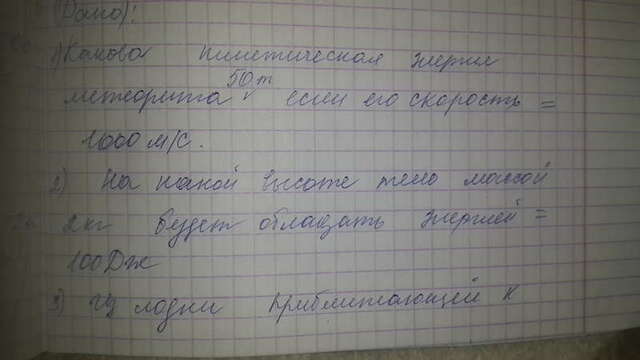 Дано):
1) Какова кинетическая энергия
50 т
метеорита если его скорость =
1000 м/с.
2) На какой высоте тело массой
2 кг будет обладать энергией =
100 Дж
3) Из лодки приближающейся к